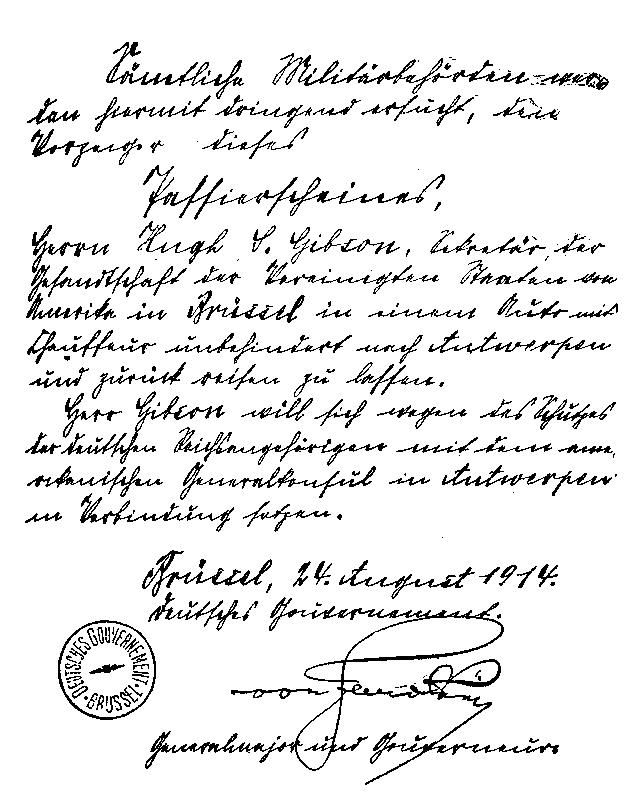 Sämtliche Militärbehörden wer
den hiermit dringend ersucht, dem
Vorzeiger dieses
Passierscheines,
Herrn Hugh S. Gibson, Sekretär der
Gesandtschaft der Vereinigten Staaten von
Amerika in Brüssel in einem Auto mit
Chauffeur unbehindert nach Antwerpen
und zurück reisen zu lassen.
Herr Gibson will sich wegen des Schutzes
der deutschen Reichsangehörigen mit dem ame,
rikanischen Generalkonsul in Antwerpen
in Verbindung setzen.
Brüssel, 24. August 1914.
Deutsches Gouvernement.
DEUTSCHES GOUVERNEMENT · BRÜSSEL ·
von
Generalmajor und Gouverneur.